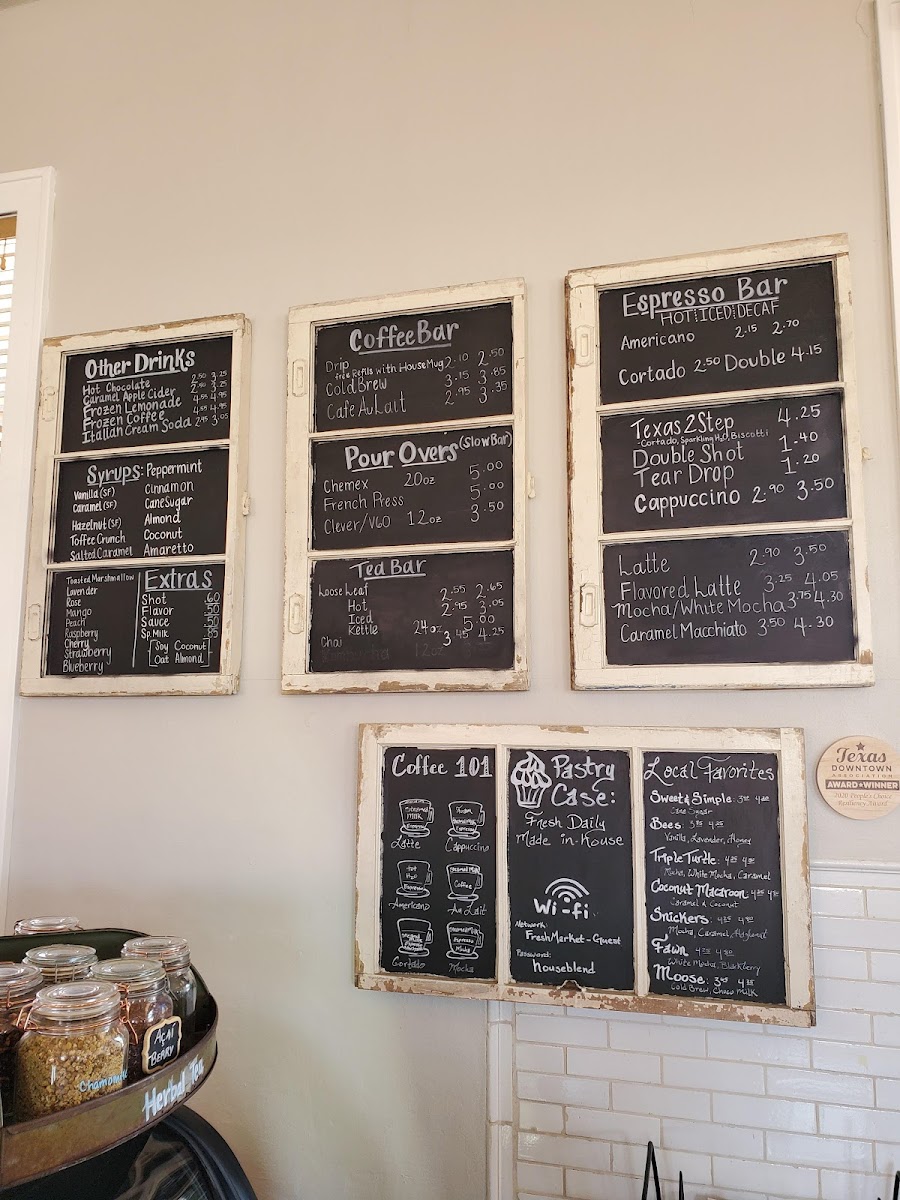 Other Drinks
Hot Chocolate 2.50 3.25
Caramel Apple Cider 3.25
Frozen Lemonade 4.55 4.95
Frozen Coffee 4.55 4.95
Italian Cream Soda 2.45 3.05
Syrups: Peppermint
Vanilla (SF) Cinnamon
Caramel (SF) Cane Sugar
Hazelnut (SF) Almond
Toffee Crunch Coconut
Salted Caramel Amaretto
Toasted Marshmallow
Lavender
Rose
Mango
Peach
Raspberry
Cherry
Strawberry
Blueberry
Extras
Shot .60
Flavor
Sauce
Sp. Milk
Soy Coconut
Oat Almond
Coffee Bar
Drip 2.10 2.50
free Refills with House Mug
Cold Brew 3.15 3.85
Cafe Au Lait 2.95 3.35
Pour Overs (Slow Bar)
Chemex 20oz 5.00
French Press 5.00
Clever/V60 12oz 3.50
Tea Bar
Loose Leaf
Hot 2.55 2.65
Iced 2.95 3.05
Kettle 24oz 5.00
Chai 3.45 4.25
12oz
Espresso Bar
HOT|ICED|DECAF
Americano 2.15 2.70
Cortado 2.50 Double 4.15
Texas 2Step 4.25
Cortado, Sparkling H2O, Biscotti
Double Shot 1.40
Tear Drop 1.20
Cappuccino 2.90 3.50
Latte 2.90 3.50
Flavored Latte 3.25 4.05
Mocha/White Mocha 3.75 4.30
Caramel Macchiato 3.50 4.30
Coffee 101
Steamed Milk
Espresso
Latte
Foam
Steamed Milk
Espresso
Cappuccino
Hot H2O
Espresso
Americano
Steamed Milk
Coffee
Au Lait
Cortado
Steamed Milk
Espresso
Mocha
Mocha
Pastry
Case:
Fresh Daily
Made in-House
Wi-fi
Network:
FreshMarket-Guest
Password:
houseblend
Local Favorites
Sweet & Simple:
Cane Sugar
Bees:
Vanilla, Lavender, Honey
Triple Turtle:
Mocha, White Mocha, Caramel
Coconut Macaroon:
Caramel & Coconut
Snickers:
Mocha, Caramel, Hazelnut
Fawn
White Mocha, Blackberry
Moose:
Cold Brew, Choco Milk
Texas
DOWNTOWN
ASSOCIATION
AWARD★WINNER
2020 People's Choice
Resiliency Award
AÇAI
BERRY
Chamomile
Herbal Tea